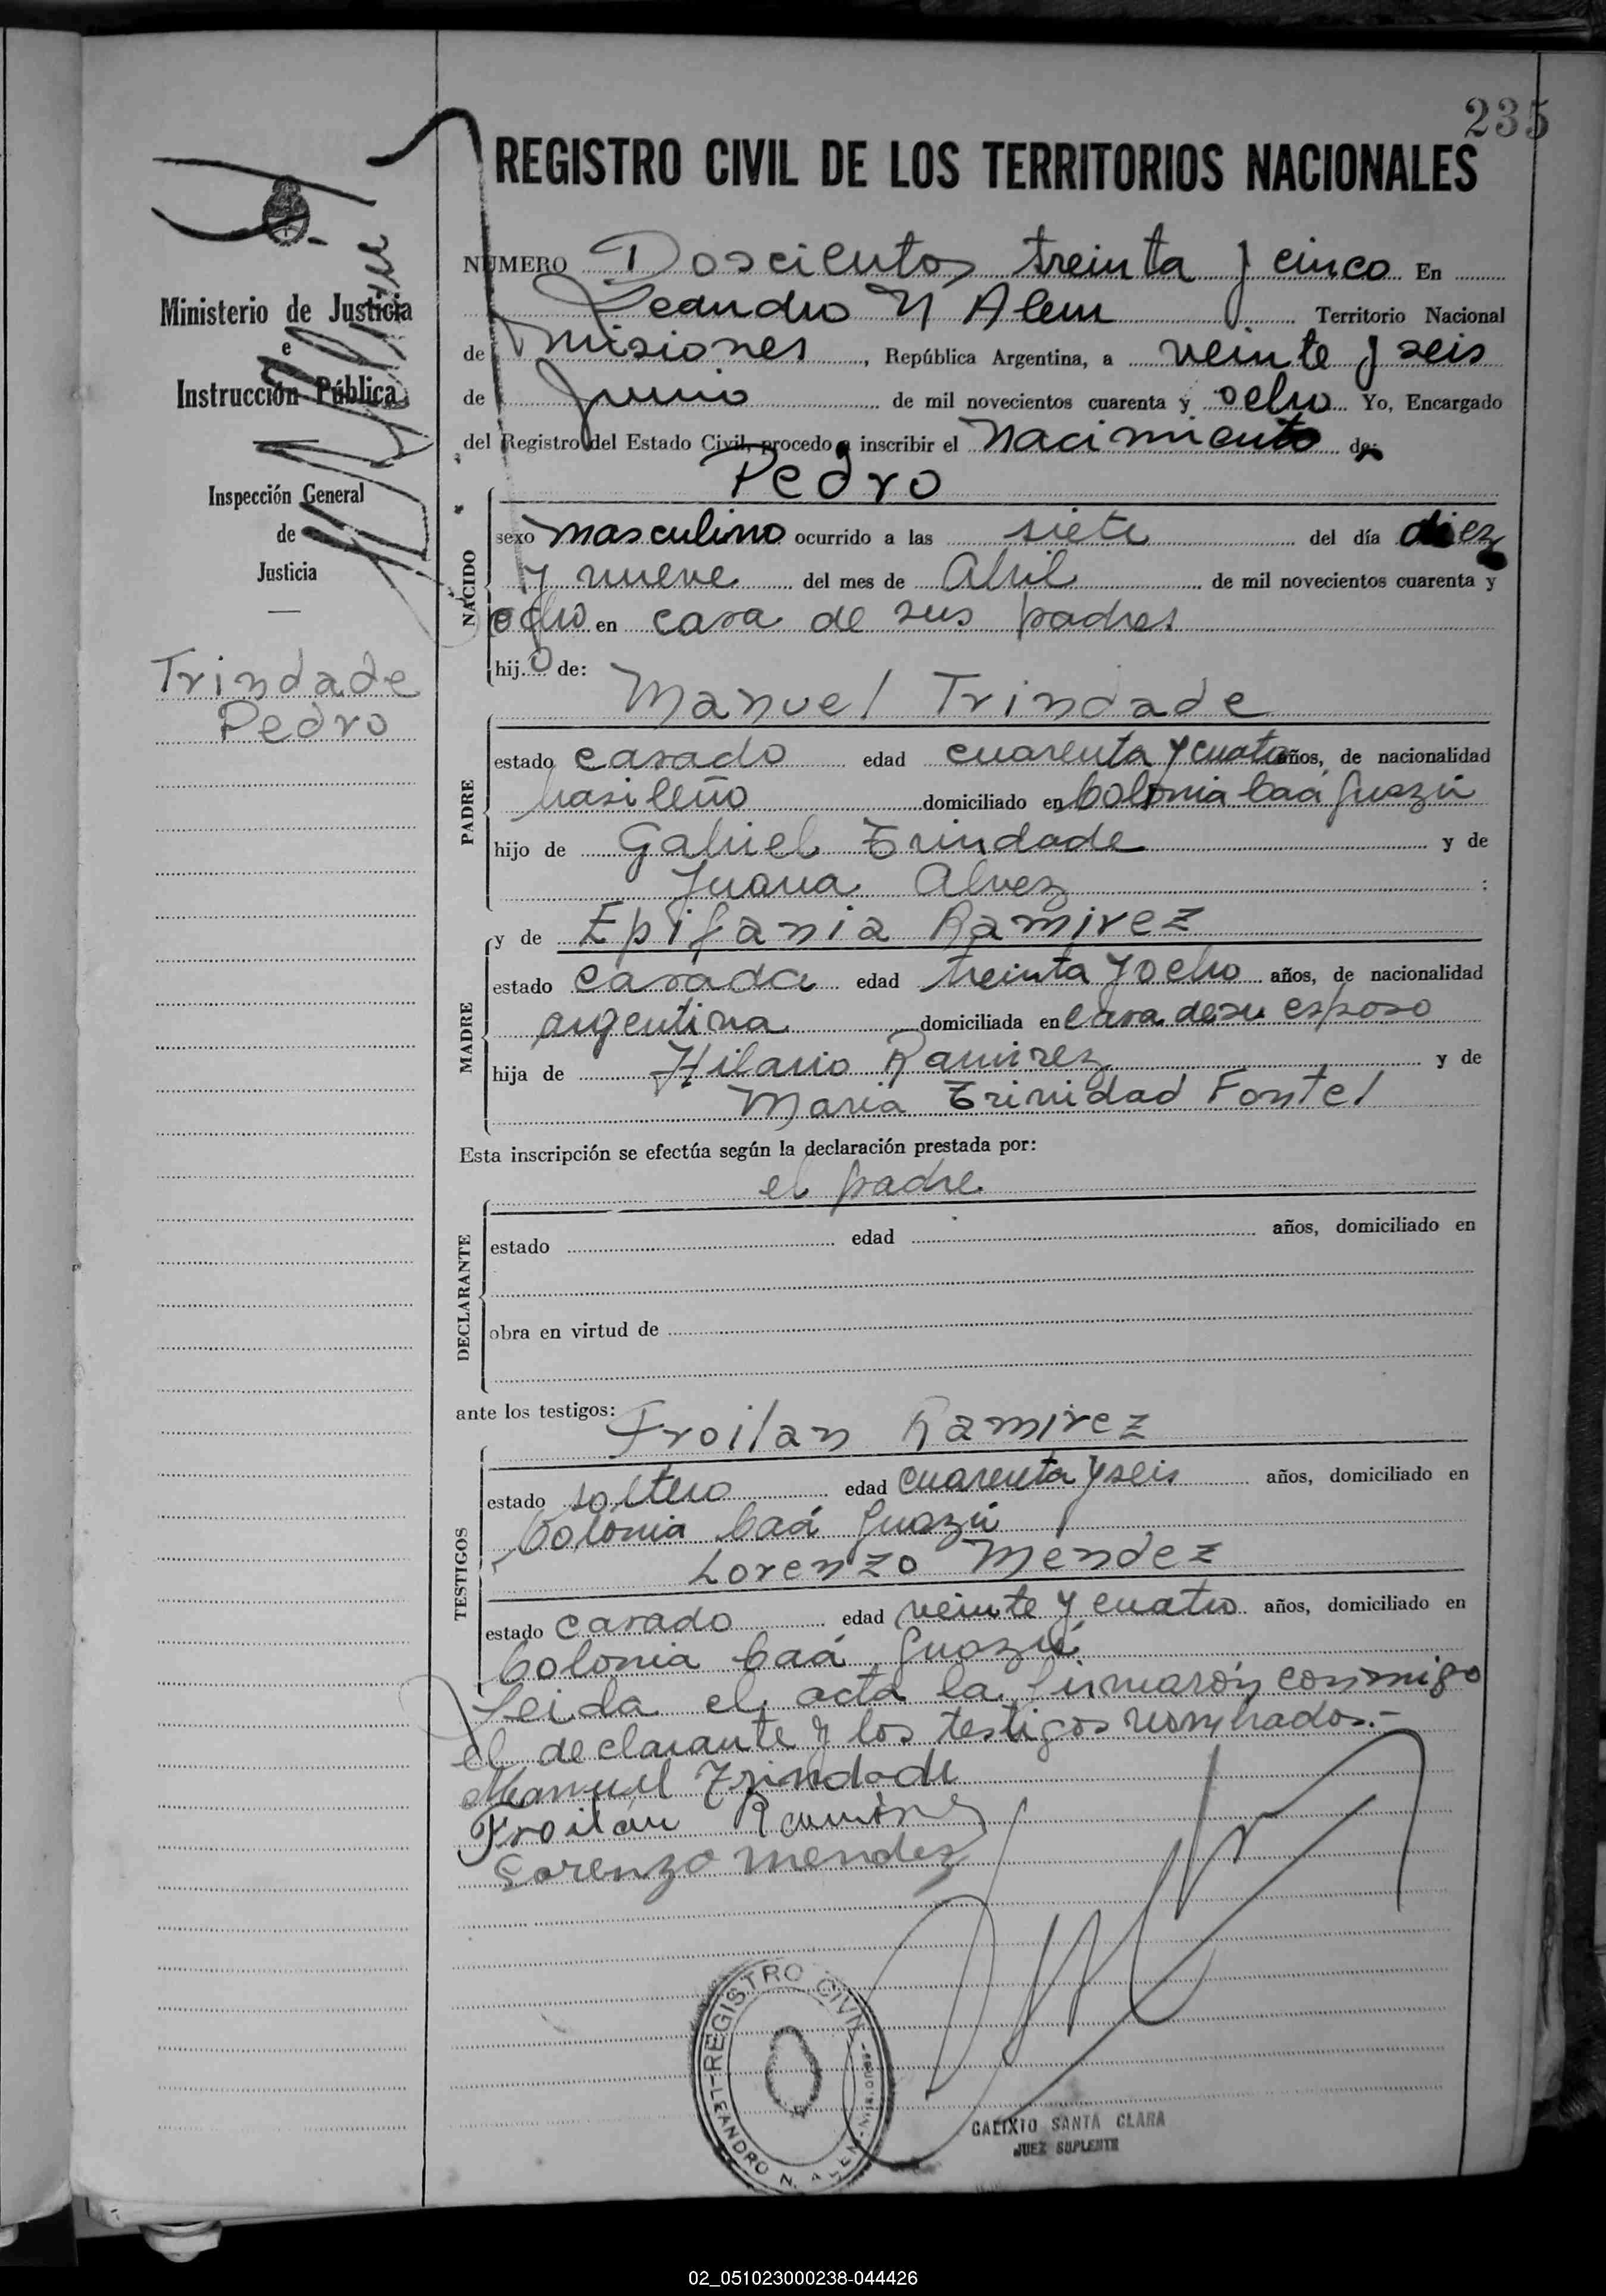 235
REGISTRO CIVIL DE LOS TERRITORIOS NACIONALES
Ministerio de Justicia
e
Instrucción Pública
Inspección General
de
Justicia
Trindade
Pedro
NÚMERO Doscientos treinta y cinco En
Leandro N Alem Territorio Nacional
de Misiones, República Argentina, a veinte y seis
de Junio de mil novecientos cuarenta y ocho Yo, Encargado
del Registro del Estado Civil, procedo a inscribir el Nacimiento de:
Pedro
NACIDO
sexo masculino ocurrido a las siete del día diez
y nueve del mes de Abril de mil novecientos cuarenta y
ocho en casa de sus padres
hijo de:
Manuel Trindade
PADRE
estado casado edad cuarenta y cuatro años, de nacionalidad
brasileño domiciliado en Colonia Caá Guazú
hijo de Gabriel Trindade y de
Juana Alvez :
y de Epifania Ramirez
MADRE
estado casada edad treinta y ocho años, de nacionalidad
argentina domiciliada en casa de su esposo
hija de Hilario Ramirez y de
Maria Trinidad Fontel
Esta inscripción se efectúa según la declaración prestada por:
el padre
DECLARANTE
estado edad años, domiciliado en
obra en virtud de
ante los testigos:
Froilan Ramirez
TESTIGOS
estado soltero edad cuarenta y seis años, domiciliado en
Colonia Caá Guazú
Lorenzo Mendez
estado casado edad veinte y cuatro años, domiciliado en
Colonia Caá Guazú
Leida el acta la firmarón conmigo
el declarante y los testigos nombrados.-
Manuel Trindade
Froilán Ramirez
Lorenzo Mendez
REGISTRO CIVIL
LEANDRO N. ALEM - Misiones
CALIXTO SANTA CLARA
JUEZ SUPLENTE
02_051023000238-044426